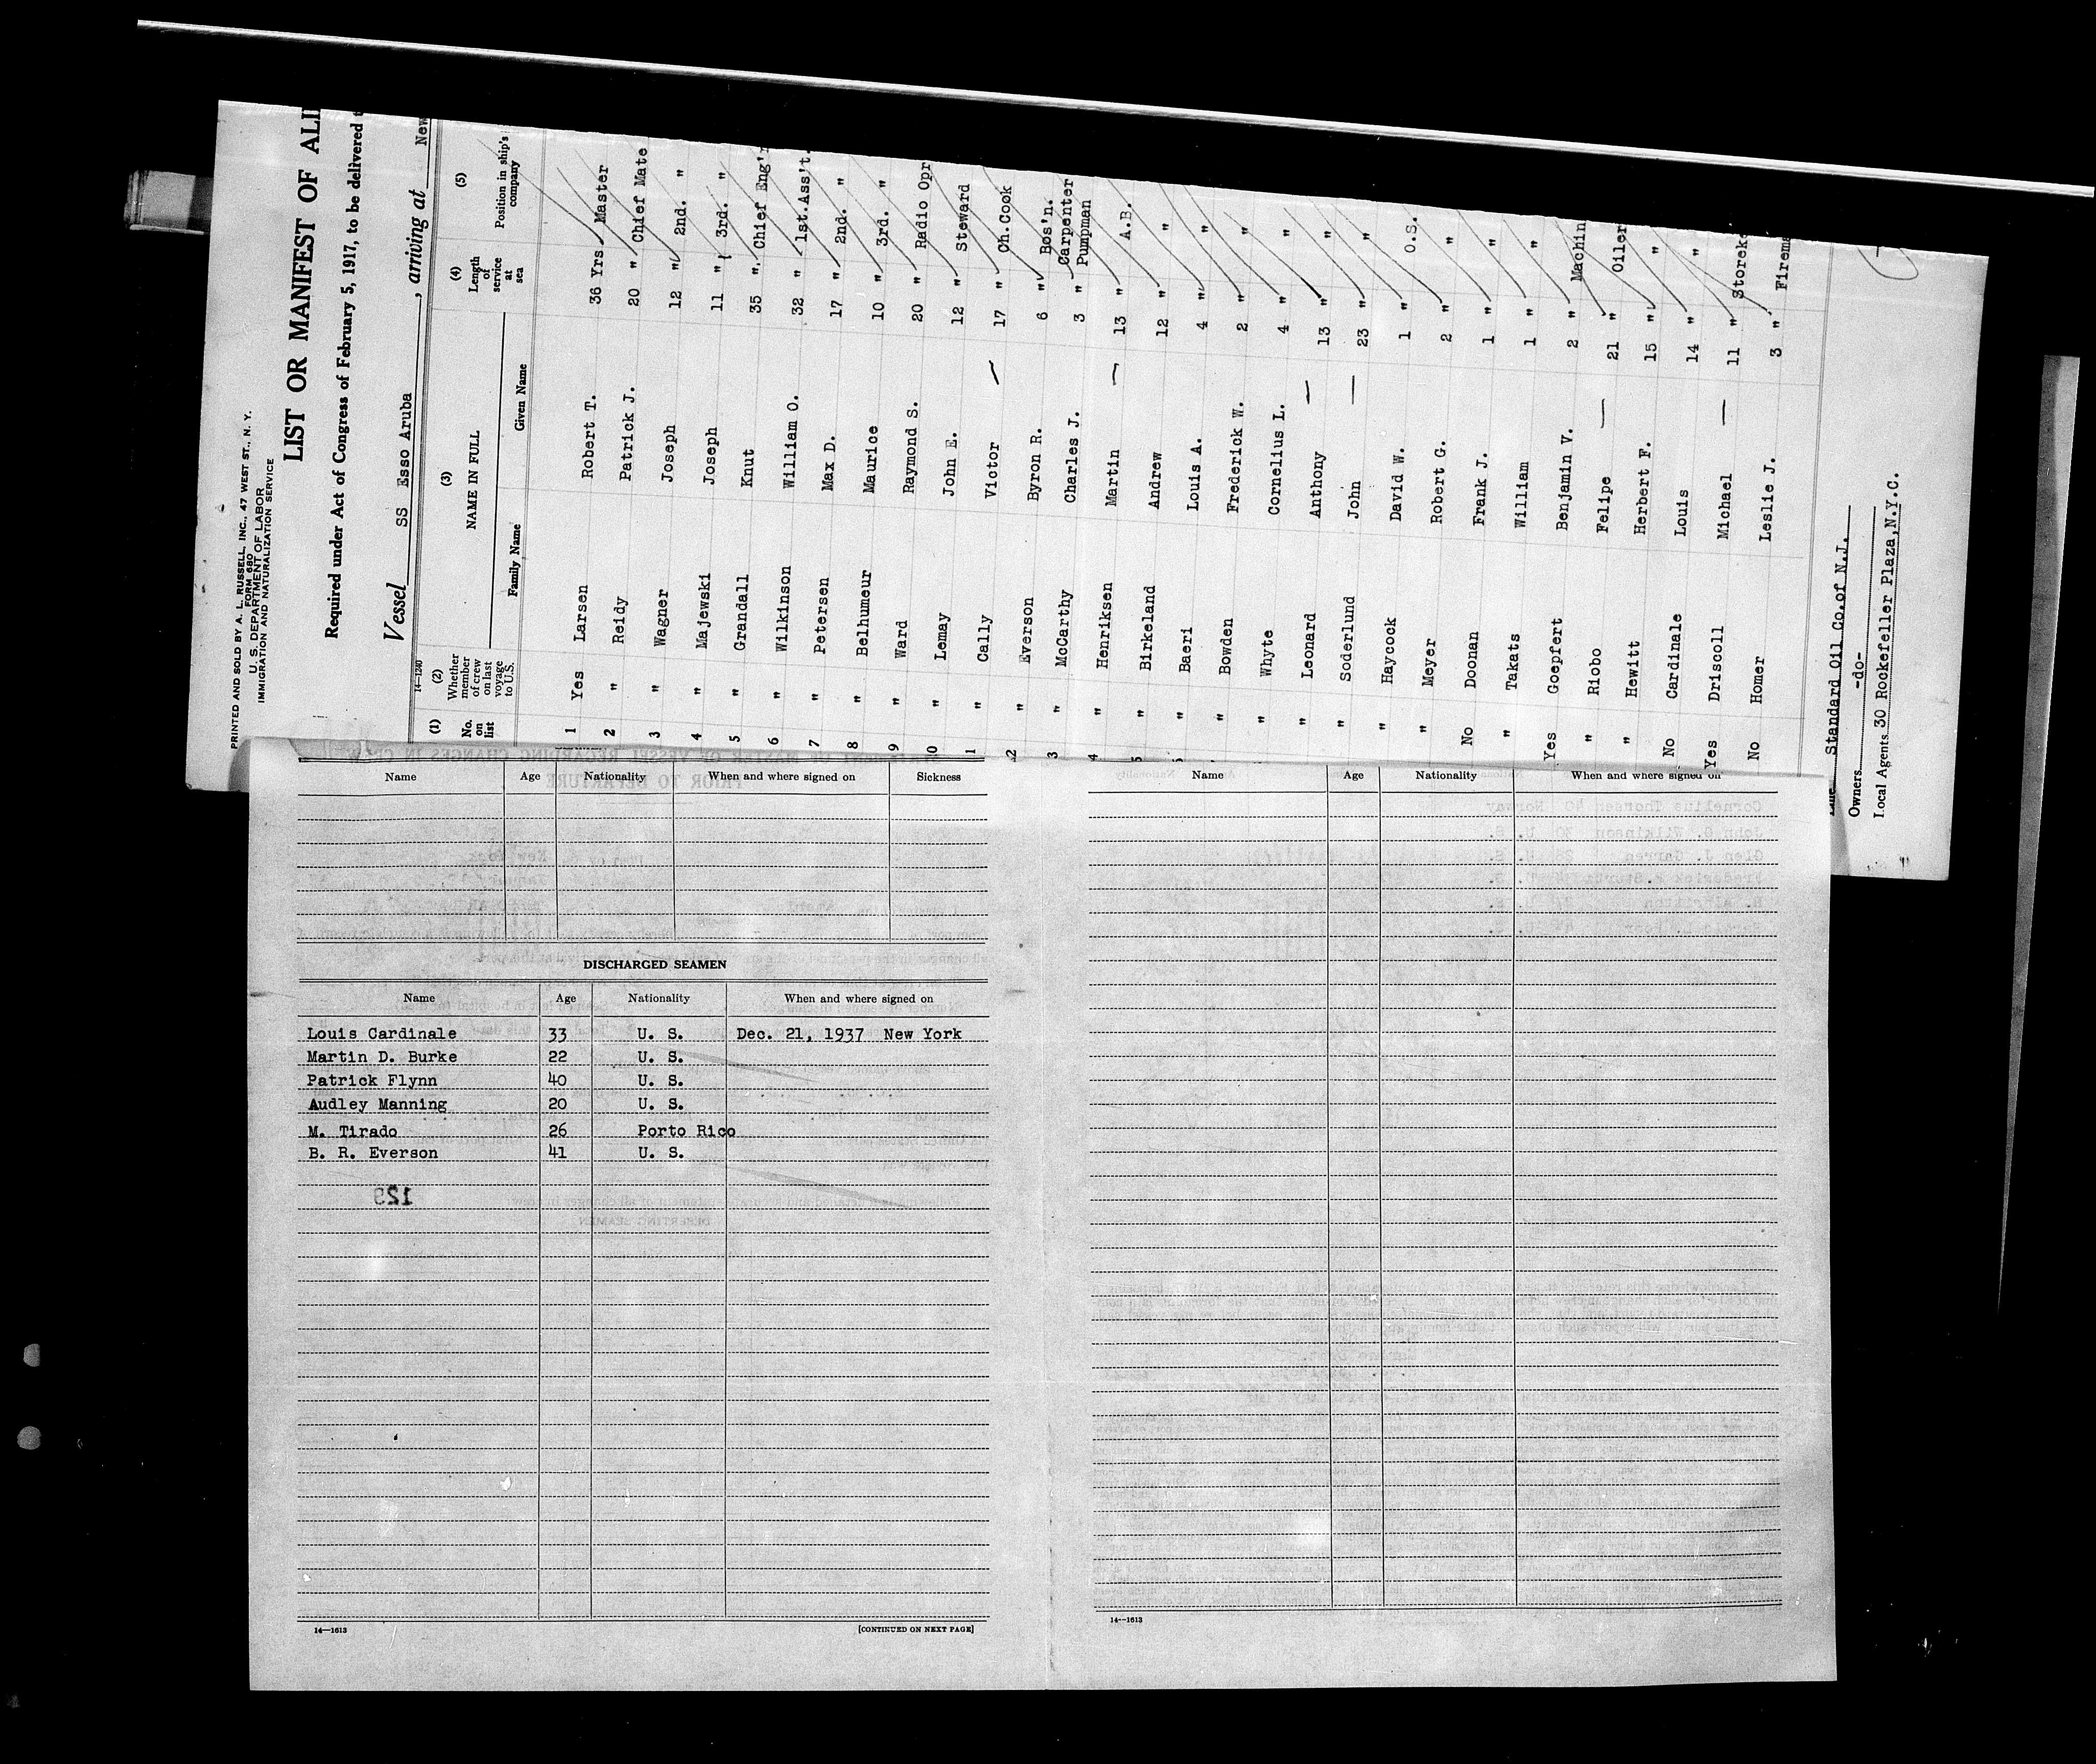 PRINTED AND SOLD BY A. L. RUSSELL, INC., 47 WEST ST., N. Y.
FORM 680
U. S. DEPARTMENT OF LABOR
IMMIGRATION AND NATURALIZATION SERVICE
LIST OR MANIFEST OF
Required under Act of Congress of February 5, 1917, to be delivered
Vessel SS Esso Aruba, arriving at New
14-1240
(1) No. on list (2) Whether member of crew on last voyage to U.S. (3) NAME IN FULL Family Name Given Name (4) Length of service at sea (5) Position in ship's company
1 Yes Larsen Robert T. 36 Yrs Master
2 " Reidy Patrick J. 20 " Chief Mate
3 " Wagner Joseph 12 " 2nd. "
4 " Majewski Joseph 11 " 3rd. "
5 " Grandall Knut 35 " Chief Eng'r
6 " Wilkinson William O. 32 " 1st.Ass't.
7 " Petersen Max D. 17 " 2nd. "
8 " Belhumeur Maurice 10 " 3rd. "
9 " Ward Raymond S. 20 " Radio Opr
0 " Lemay John E. 12 " Steward
1 " Cally Victor 17 " Ch.Cook
2 " Everson Byron R. 6 " Bos'n.
3 " McCarthy Charles J. 3 " Carpenter Pumpman
4 " Henriksen Martin 13 " A.B.
5 " Birkeland Andrew 12 " "
" Baeri Louis A. 4 " "
" Bowden Frederick W. 2 " "
" Whyte Cornelius L. 4 " "
" Leonard Anthony 13 " "
" Soderlund John 23 " "
" Haycock David W. 1 " O.S.
" Meyer Robert G. 2 " "
No Doonan Frank J. 1 " "
" Takats William 1 " "
Yes Goepfert Benjamin V. 2 " Machin
" Riobo Felipe 21 " Oiler
" Hewitt Herbert F. 15 " "
No Cardinale Louis 14 " "
Yes Driscoll Michael 11 " Storek
No Homer Leslie J. 3 " Firema
Standard Oil Co.of N.J.
Owners -do-
Local Agents 30 Rockefeller Plaza,N.Y.C.
Name Age Nationality When and where signed on Sickness
DISCHARGED SEAMEN
Name Age Nationality When and where signed on
Louis Cardinale 33 U. S. Dec. 21, 1937 New York
Martin D. Burke 22 U. S.
Patrick Flynn 40 U. S.
Audley Manning 20 U. S.
M. Tirado 26 Porto Rico
B. R. Everson 41 U. S.
129
14—1613 [CONTINUED ON NEXT PAGE]
Name Age Nationality When and where signed on
14—1613